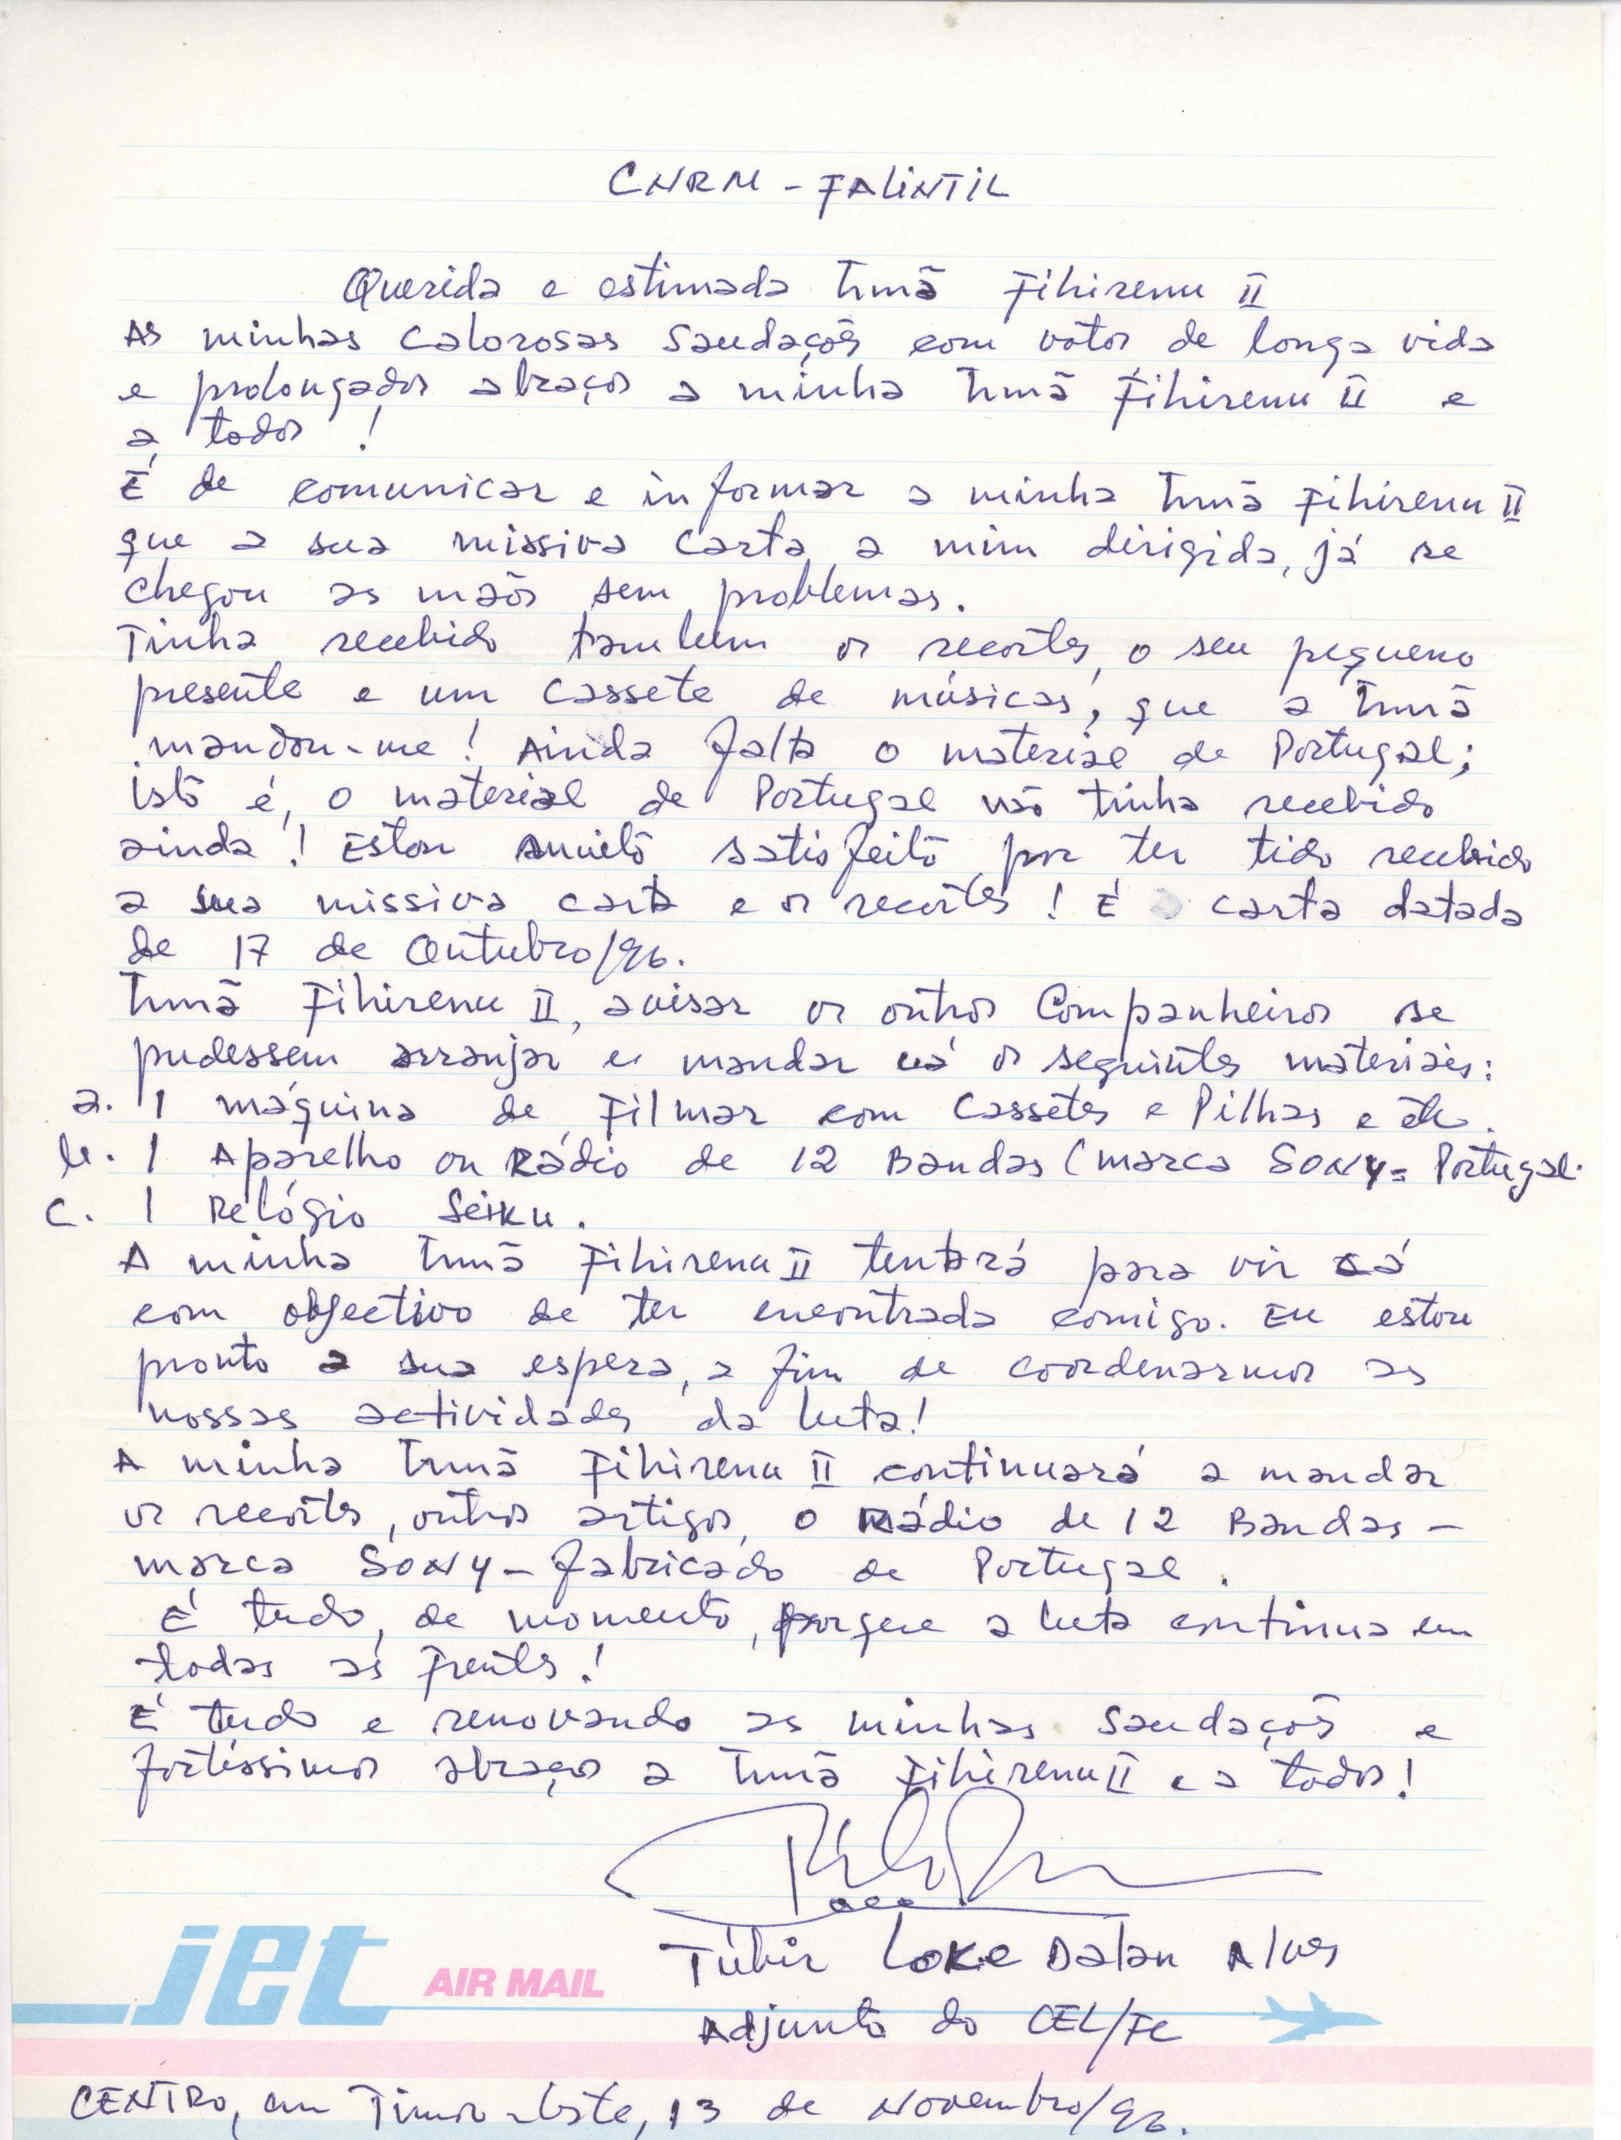 CNRM - FALINTIL
Querida e estimada Irmã Fihirenu II
As minhas calorosas saudações com votos de longa vida
e prolongados abraços a minha Irmã Fihirenu II e
a todos !
É de comunicar e informar a minha Irmã Fihirenu II
que a sua missiva carta a mim dirigida, já se
chegou as mãos sem problemas.
Tinha recebido tambem os recortes, o seu pequeno
presente e um cassete de músicas, que a Irmã
mandou-me ! Ainda falta o material de Portugal;
isto é, o material de Portugal não tinha recebido
ainda ! Estou muito satisfeito por ter tido recebido
a sua missiva carta e os recortes ! É a carta datada
de 17 de Outubro/96.
Irmã Fihirenu II, avisar os outros Companheiros se
pudessem arranjar e mandar cá os seguintes materiais:
a. 1 máquina de Filmar com cassetes e Pilhas e etc.
b. 1 Aparelho ou Rádio de 12 Bandas (marca SONY = Portugal.
c. 1 Relógio Seiku.
A minha Irmã Fihirenu II tentará para vir cá
com objectivo de ter encontrada comigo. Eu estou
pronto a sua espera, a fim de coordenarmos as
nossas actividades da luta!
A minha Irmã Fihirenu II continuará a mandar
os recortes, outros artigos, o Rádio de 12 Bandas -
marca SONY - fabricado de Portugal.
É tudo, de momento, porque a luta continua em
todas as Frentes !
É tudo e renovando as minhas saudações e
fortíssimos abraços a Irmã Fihirenu II e a todos !
Túbir Loke Dalan Alves
Adjunto do CEL/FC
jet AIR MAIL
CENTRO, em Timor-Leste, 13 de Novembro/96.